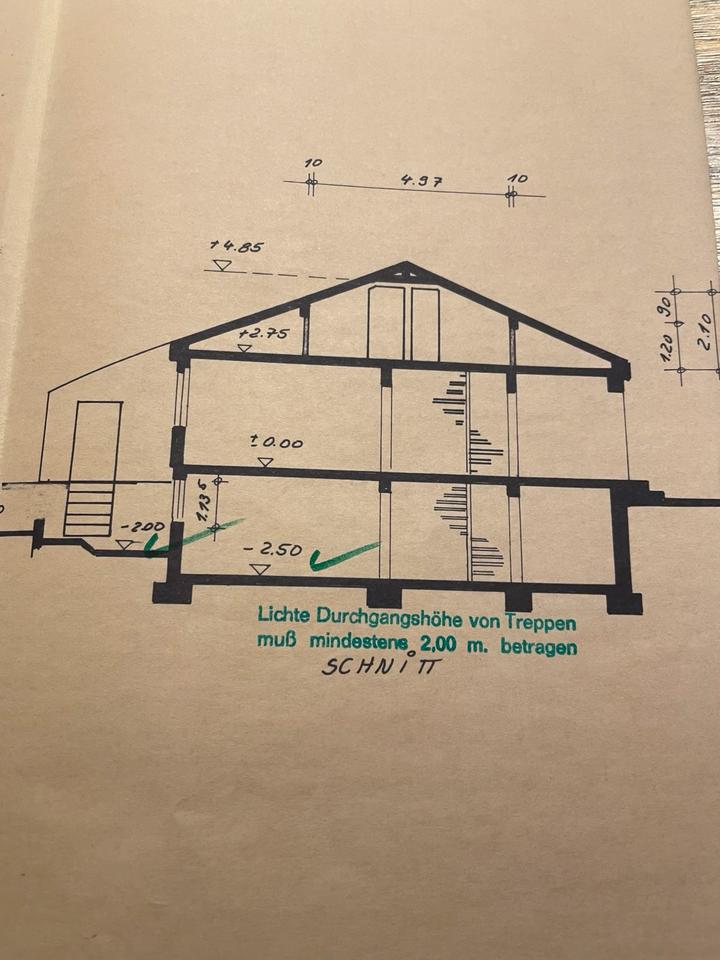 10 4.97 10
+4.85
+2.75
90
1.20 2.10
± 0.00
1.135
-2.00
- 2.50
Lichte Durchgangshöhe von Treppen
muß mindestens 2,00 m. betragen
SCHNITT